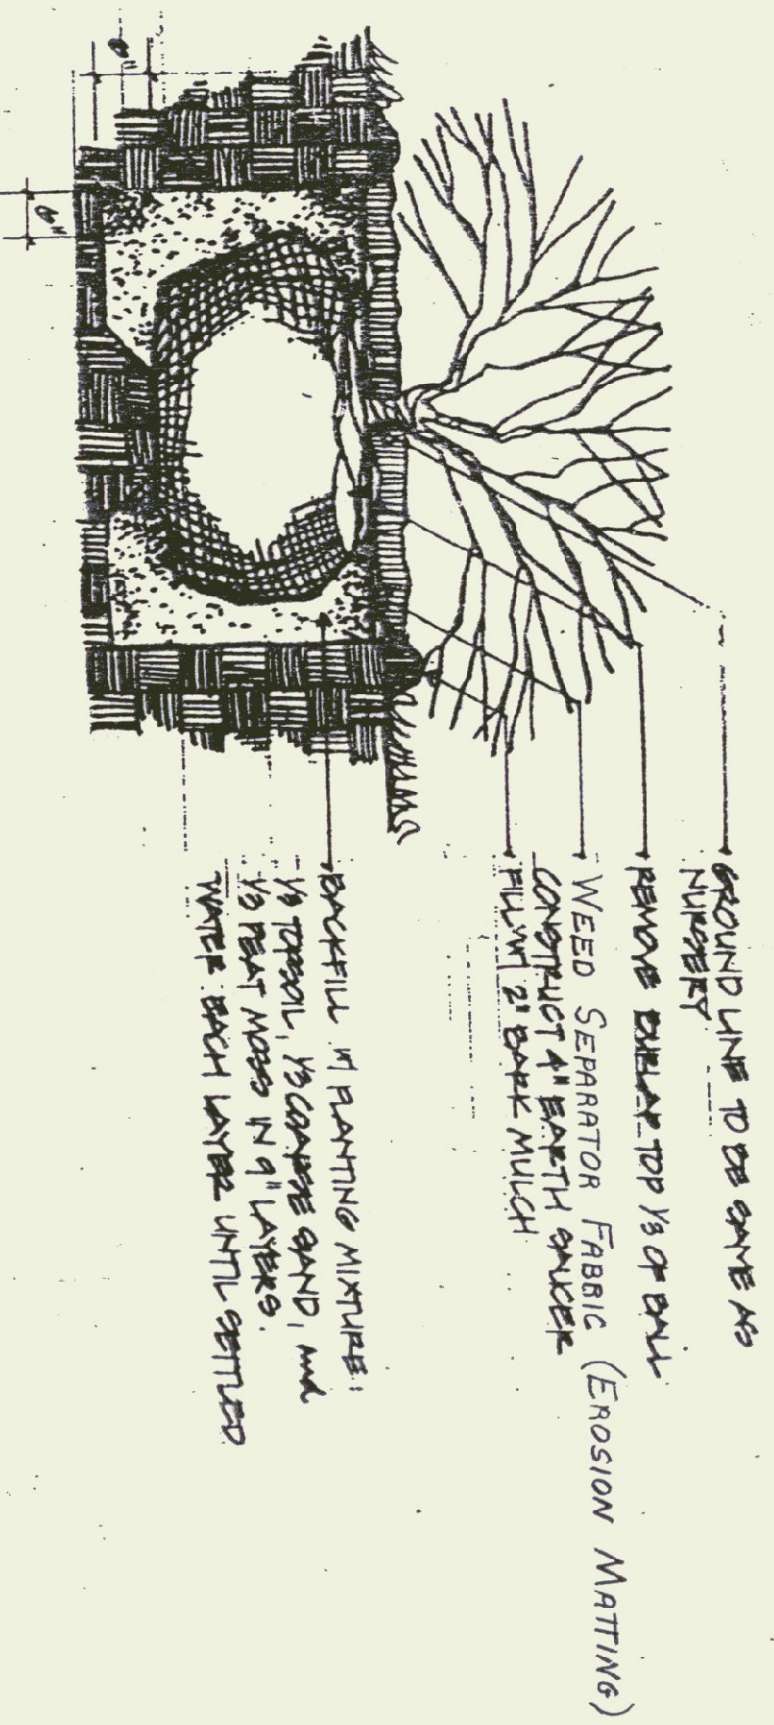 GROUND LINE TO BE SAME AS
NURSERY
REMOVE BURLAP TOP 1/3 OF BALL
WEED SEPARATOR FABRIC (EROSION MATTING)
CONSTRUCT 4" EARTH SAUCER
FILL W/ 2" BARK MULCH
BACKFILL W/ PLANTING MIXTURE:
1/3 TOPSOIL, 1/3 COARSE SAND, AND
1/3 PEAT MOSS IN 9" LAYERS.
WATER EACH LAYER UNTIL SETTLED